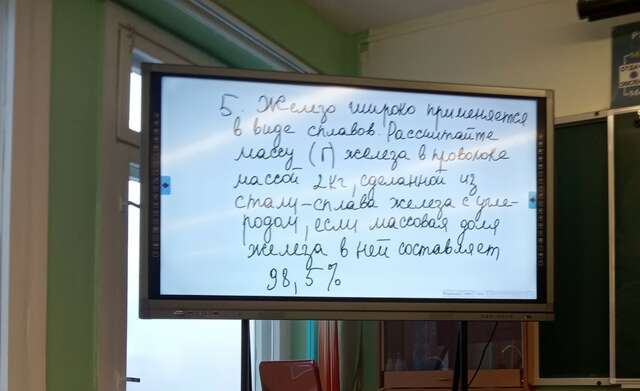 5. Железо широко применяется
в виде сплавов. Рассчитайте
массу (г) железа в проволоке
массой 2 кг, сделанной из
стали-сплава железа с угле-
родом, если массовая доля
железа в ней составляет
98,5%